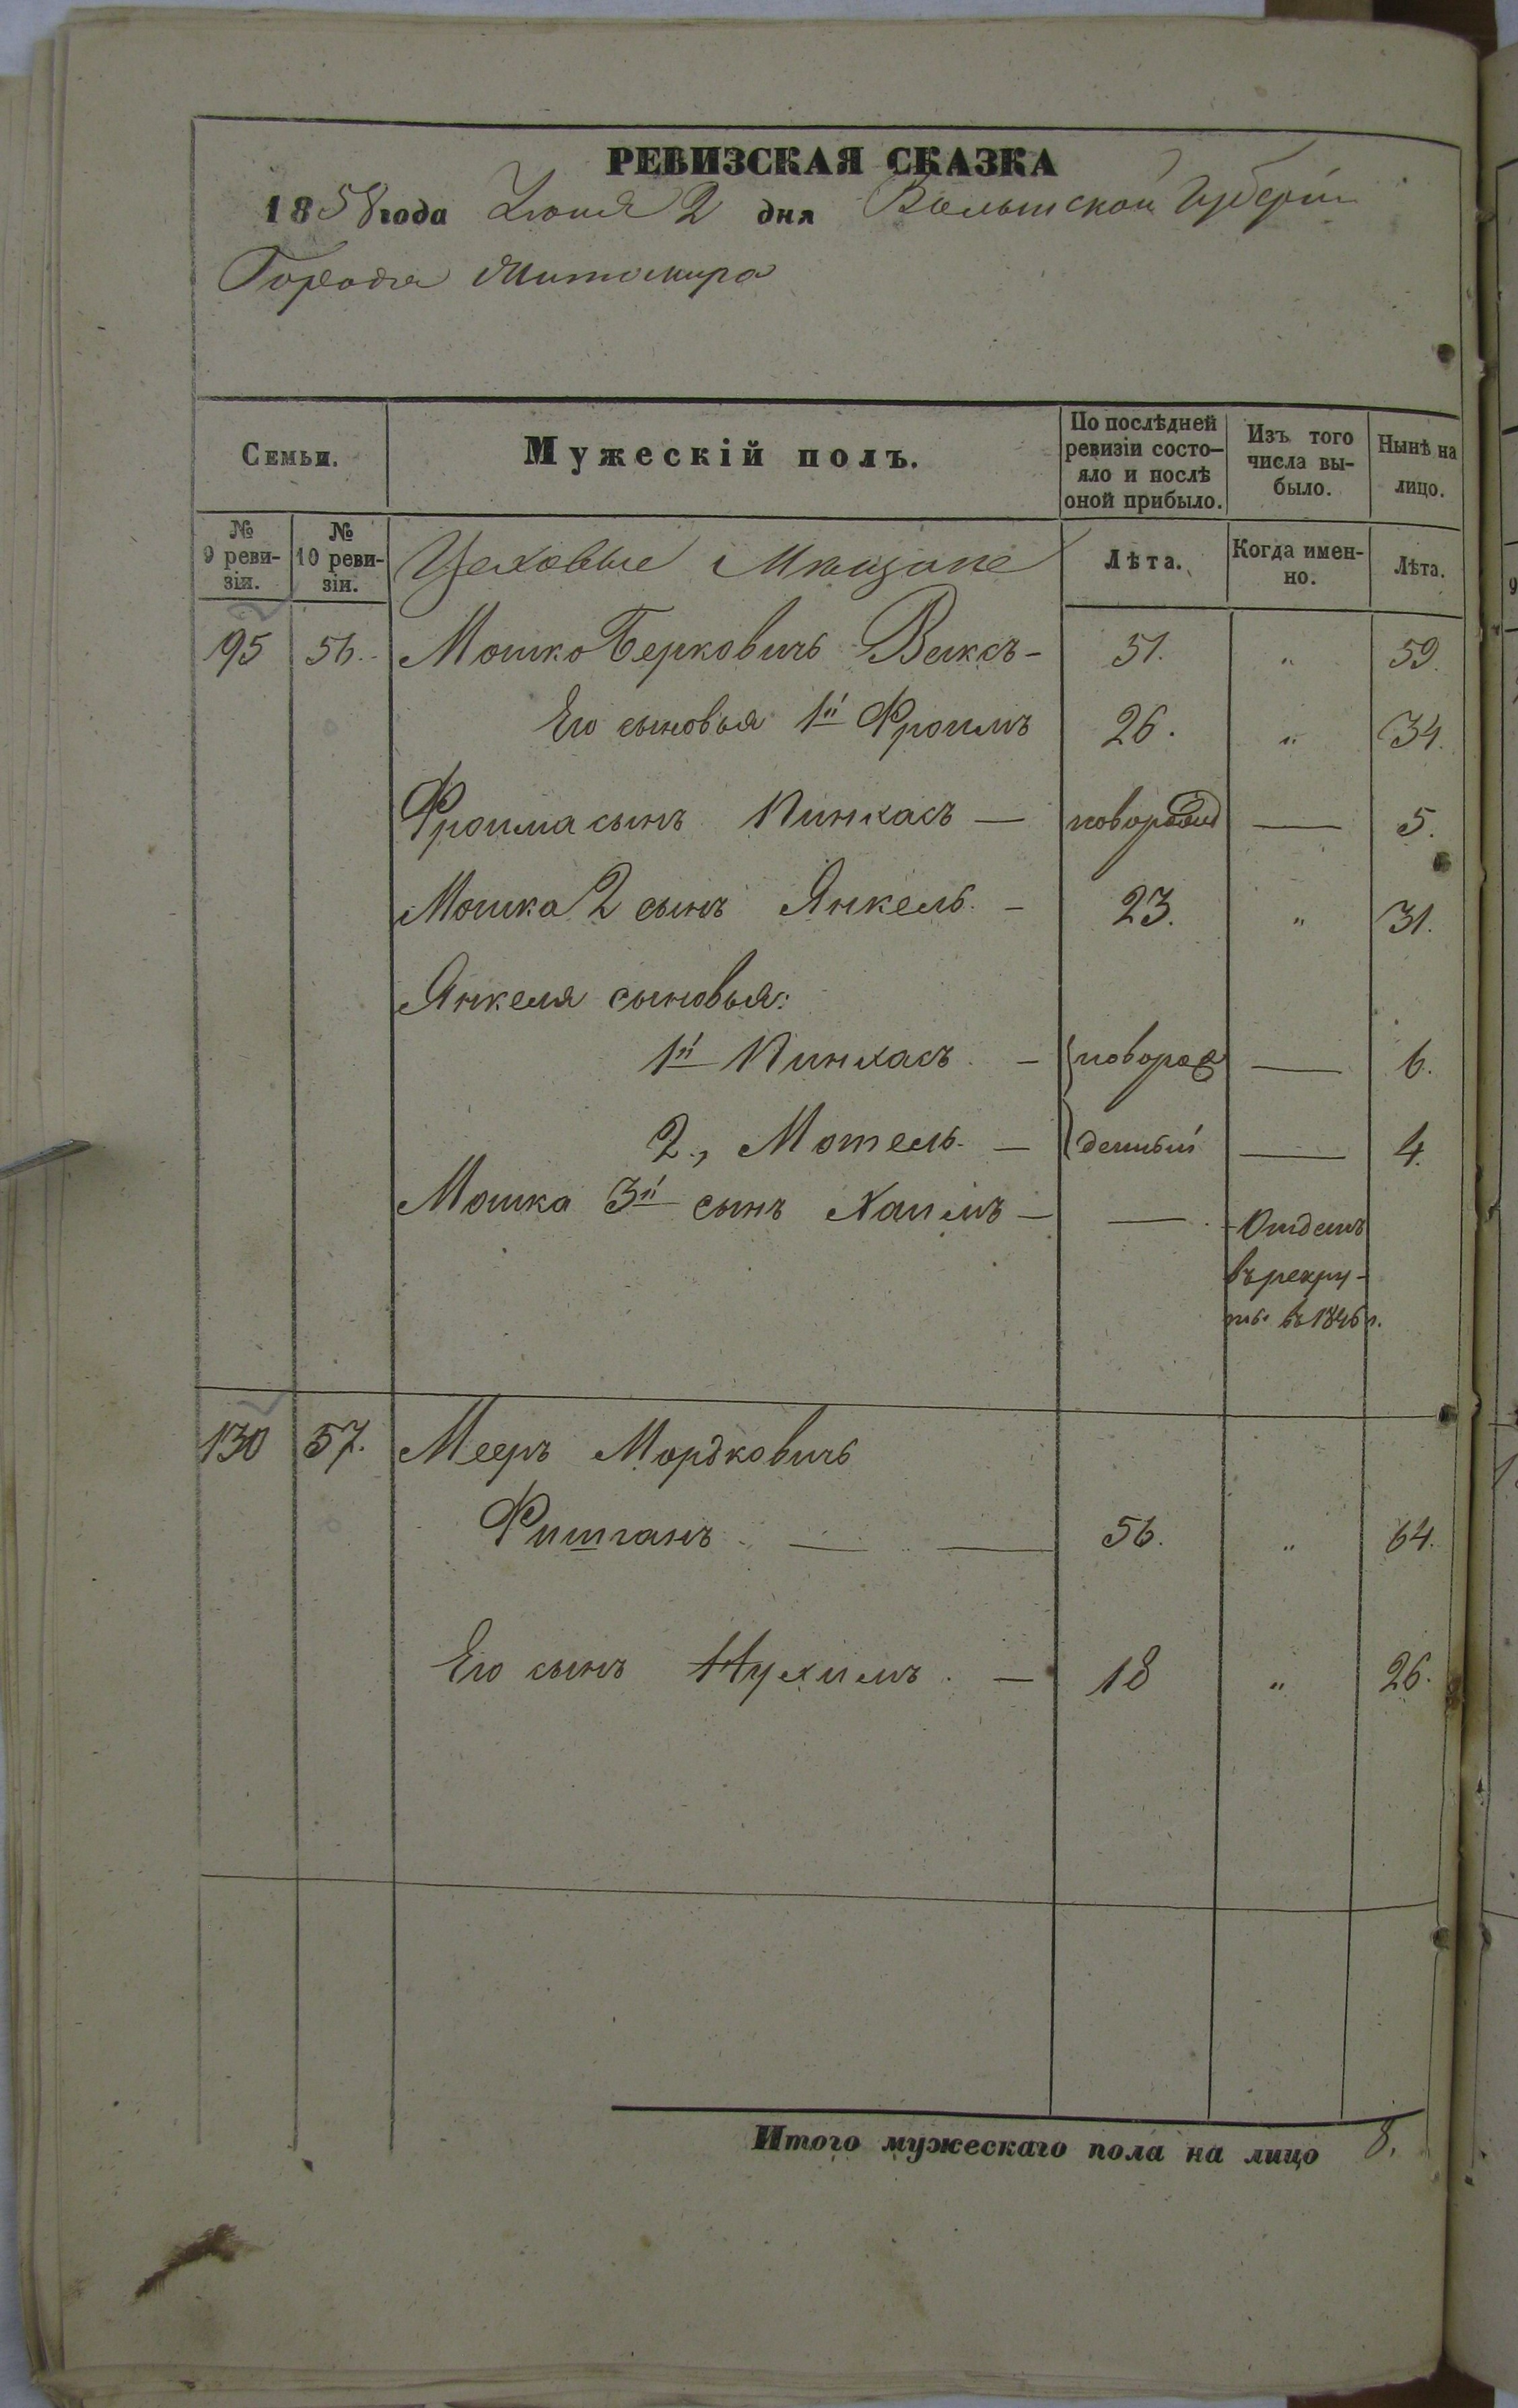 РЕВИЗСКАЯ СКАЗКА
1858 года Іюня 2 дня Волынской Губерніи
Города Житомира
Семьи.
Мужескій полъ.
По послѣдней ревизіи состо-
яло и послѣ
оной прибыло.
Изъ того
числа вы-
было.
Нынѣ на
лицо.
№
9 реви-
зіи.
№
10 реви-
зіи.
Цеховые Мѣщане
Лѣта.
Когда имен-
но.
Лѣта.
95 56. Мошко Берковичъ Виксъ - 51. " 59.
Его сыновья 1й Фроимъ 26. " 34.
Фроима сынъ Пинхасъ — новорожд — 5.
Мошка 2 сынъ Янкель - 23. " 31.
Янкеля сыновья:
1й Пинхасъ - новорож — 6.
2., Мотель - денный — 4.
Мошка 3й сынъ Хаимъ — — Отданъ
въ рекру-
ты въ 1846 г.
130 57. Мееръ Мордковичъ
Фишганъ — — 56. " 64.
Его сынъ Нухимъ — 18 " 26.
Итого мужескаго пола на лицо 8.